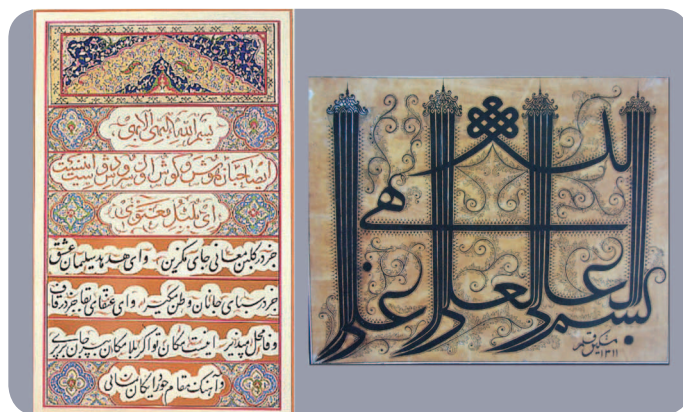 بسم الله البهی الابهی
ایصاحبان هوش و گوش اول سروش دوست اینست
ای بلبل معنوی
جز در گلبن معانی جای مگزین و ای هدهد سلیمان عشق
جز در سبای جانان وطن مگیر و ای عنقای بقا جز در قاف
وفا محل مپذیر اینست مکان تو اگر بلامکان بپر جان برپری
و آهنگ مقام خود رایگان نمائی
بسم
مشکین قلم
۱۳۱۱